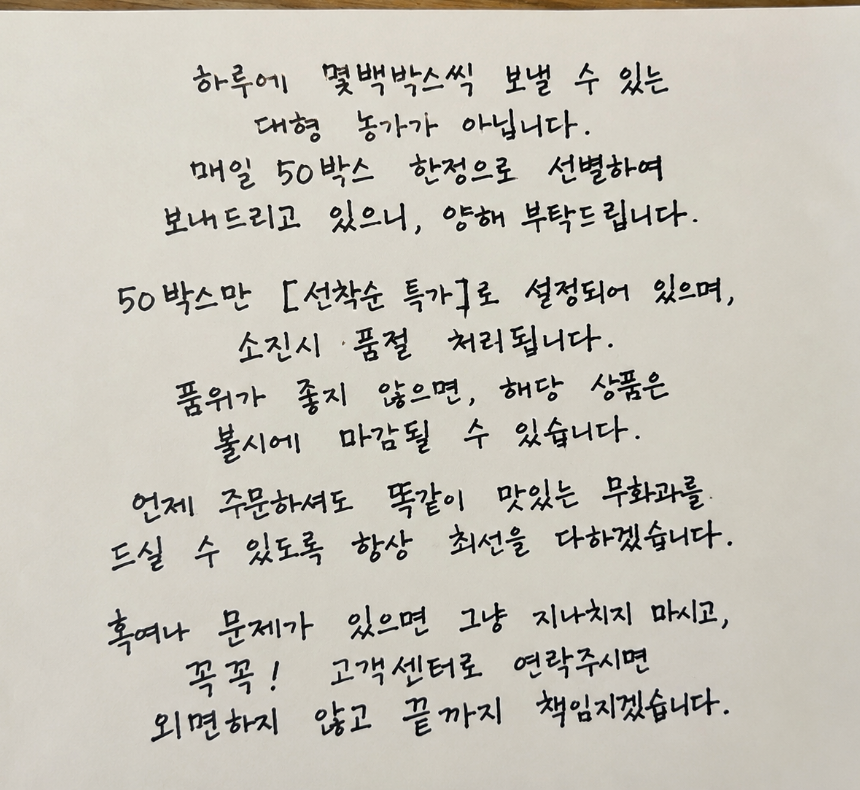 하루에 몇백박스씩 보낼 수 있는
대형 농가가 아닙니다.
매일 50박스 한정으로 선별하여
보내드리고 있으니, 양해 부탁드립니다.
50박스만 [선착순 특가]로 설정되어 있으며,
소진시 품절 처리됩니다.
품위가 좋지 않으면, 해당 상품은
불시에 마감될 수 있습니다.
언제 주문하셔도 똑같이 맛있는 무화과를
드실 수 있도록 항상 최선을 다하겠습니다.
혹여나 문제가 있으면 그냥 지나치지 마시고,
꼭꼭! 고객센터로 연락주시면
외면하지 않고 끝까지 책임지겠습니다.